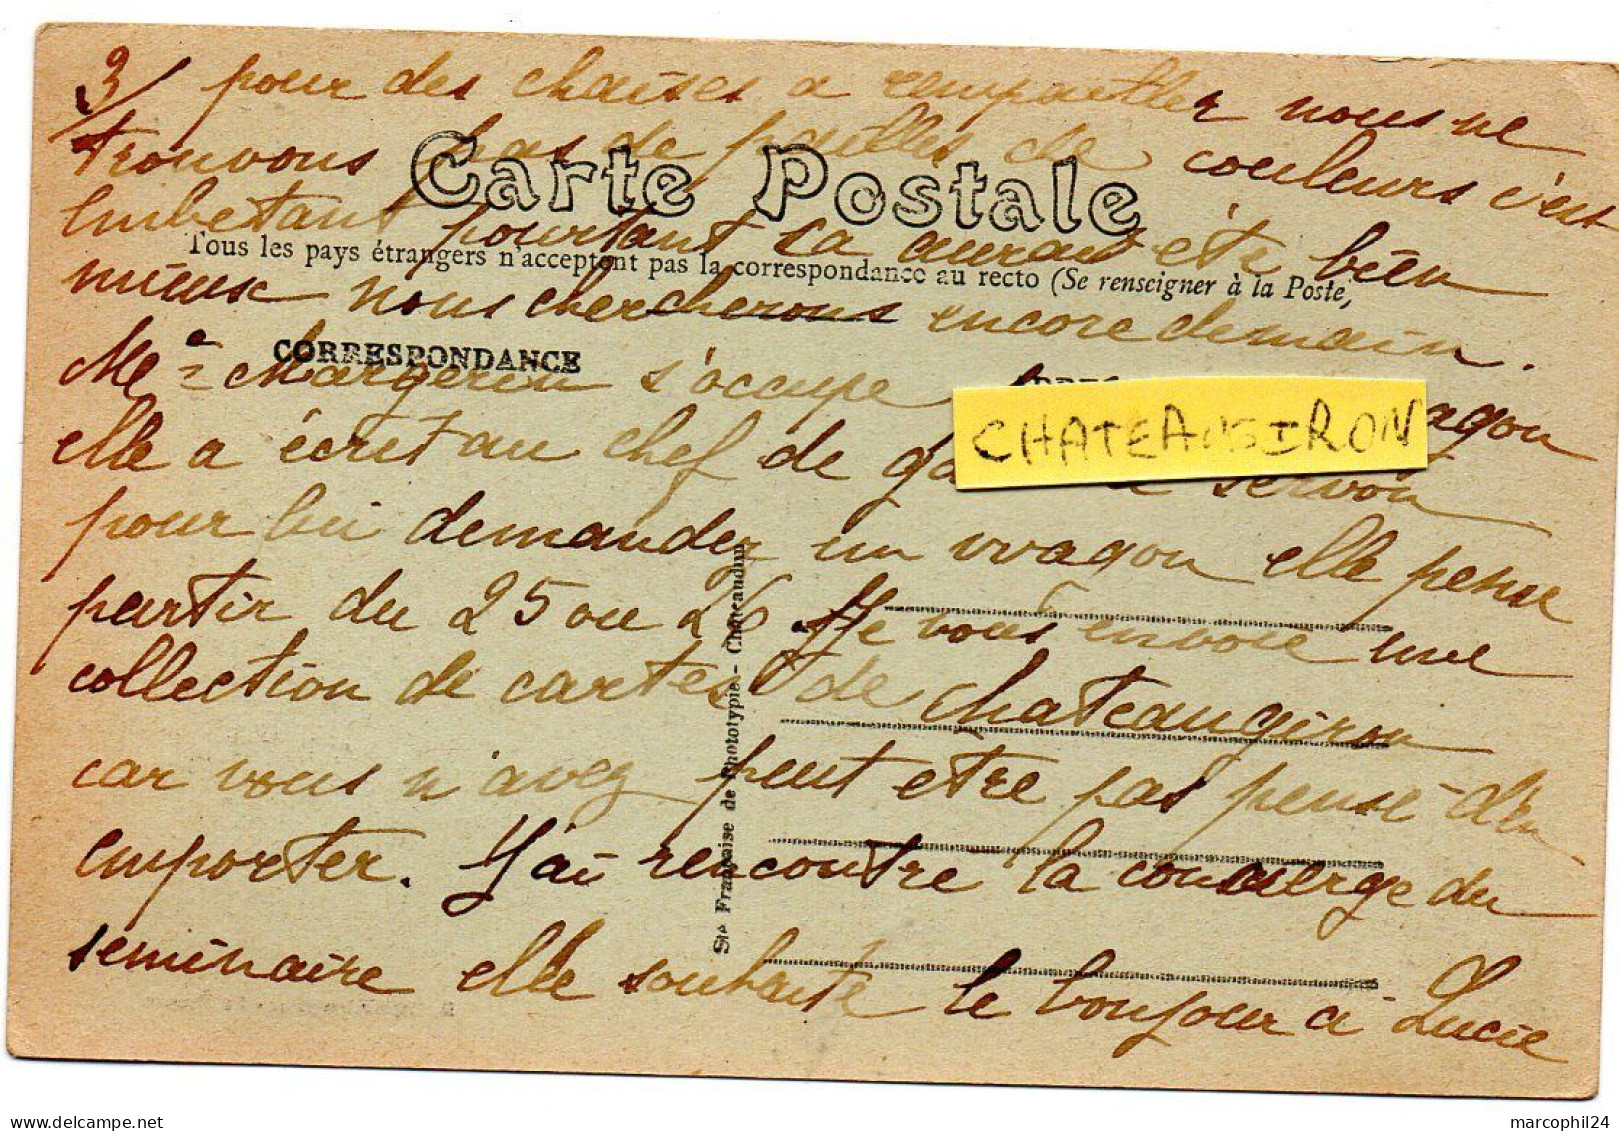 3/ pour des chaises a rempailler nous ne
trouvons pas de pailles de couleurs c'est
Carte Postale
embetant pourtant ca aurait été bien
Tous les pays étrangers n'acceptent pas la correspondance au recto (Se renseigner à la Poste)
mieux nous chercherons encore demain.
CORRESPONDANCE
Me Margerin s'occupe
CHATEAUGIRON
elle a écrit au chef de Servon
pour lui demander un wagon elle pense
partir du 25 ou 26 Je vous envoie une
collection de cartes de chateaugiron
car vous n'avez peut etre pas pensé d'en
emporter. J'ai rencontre la concierge du
seminaire elle souhaite le bonjour a Lucie
Sté Française de Phototypie - Chateaudun
marcophil24